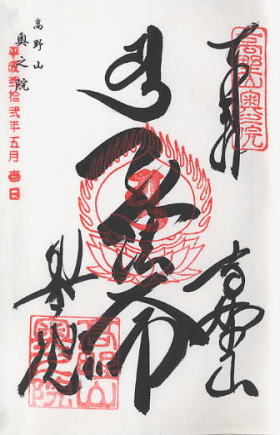 奉拝
高野山奥之院
高野山
奥之院
高野山奥之院
高野山
奥之院
平成弐拾弐年五月吉日